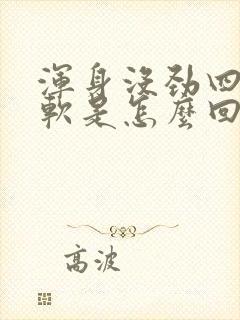 渾身沒勁四
軟是怎麼回
高波